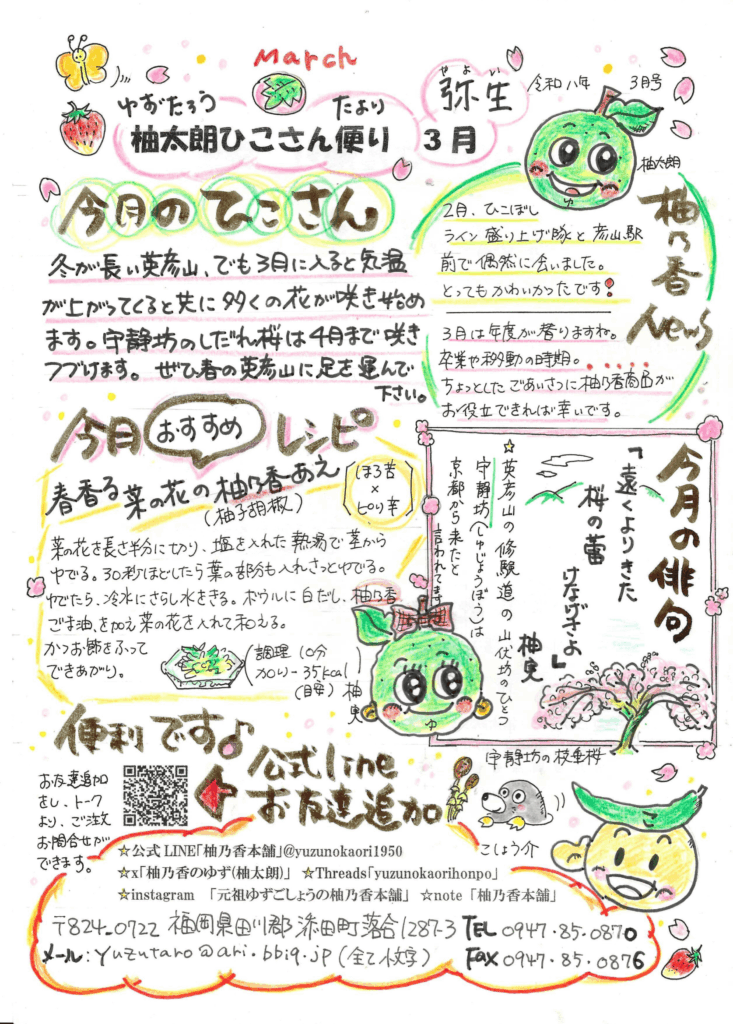 March
やよい
弥生
令和八年 3月号
ゆずたろう たより
柚太朗ひこさん便り 3月
柚太朗
ゆ
今月のひこさん
冬が長い英彦山、でも3月に入ると気温
が上がってくると共に多くの花が咲き始め
ます。守静坊のしだれ桜は4月まで咲き
つづけます。ぜひ春の英彦山に足を運んで
下さい。
柚乃香News
2月、ひこぼし
ライン盛り上げ隊と彦山駅
前で偶然に会いました。
とってもかわいかったです!
3月は年度が替りますね。
卒業や移動の時期。
ちょっとしたごあいさつに柚乃香商品が
お役立できれば幸いです。
今月おすすめレシピ
春香る菜の花の柚乃香あえ
(柚子胡椒)
ほろ苦
×
ピリ辛
菜の花を長さ半分に切り、塩を入れた熱湯で茎から
ゆでる。30秒ほどしたら葉の部分も入れさっとゆでる。
ゆでたら、冷水にさらし水をきる。ボウルに白だし、柚乃香
ごま油、を加え菜の花を入れて和える。
かつお節をふって
できあがり。
調理 10分
カロリー 35kcal
(目安)
柚実
ゆ
今月の俳句
「遠くよりきた
桜の蕾
けなげさよ」
柚実
☆英彦山の修験道の山伏坊のひとつ
守静坊(しゅじょうぼう)は
京都から来たと
言われてます
守静坊の枝垂桜
便利です♪
公式line
お友達追加
お友達追加
をし、トーク
より、ご注文
お問合せが
できます。
こしょう介
こ
☆公式LINE「柚乃香本舗」@yuzunokaori1950
☆x「柚乃香のゆず(柚太朗)」 ☆Threads「yuzunokaorihonpo」
☆instagram 「元祖ゆずごしょうの柚乃香本舗」 ☆note「柚乃香本舗」
〒824-0722 福岡県田川郡添田町落合1287-3 TEL 0947・85・0870
メール:yuzutaro@ari.bbiq.jp(全て小文字) FAX 0947・85・0876